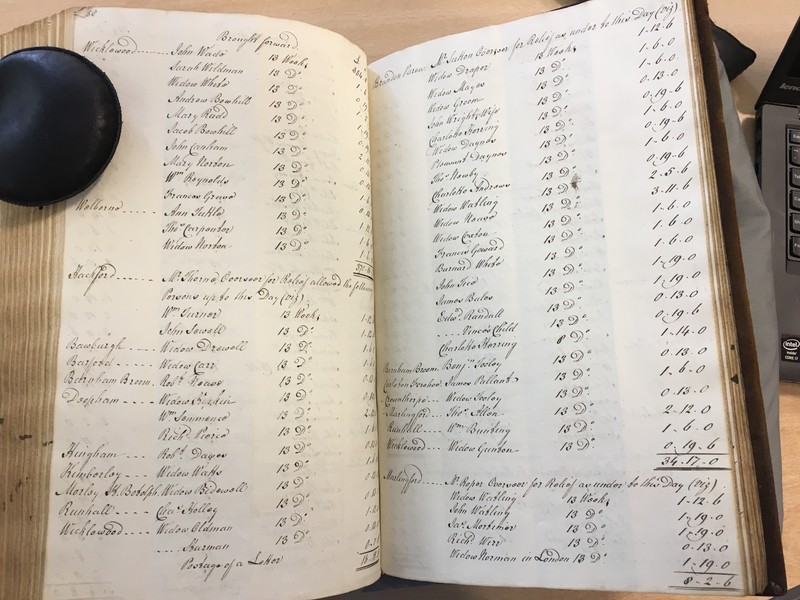 Brought forward
Wicklewood John Wade 13 Weeks
Sarah Wildman 13 Do
Widow White 13 Do
Andrew Bowhill 13 Do
Mary Rudd 13 Do
Jacob Bowhill 13 Do
John Canham 13 Do
Mary Norton 13 Do
Wm Reynolds 13 Do
Frances Greave 13 Do
Welborne Ann Tuttle 13 Do
Thos Carpenter 13 Do
Widow Norton 13 Do
Hackford Mr Thorne Overseer for Relief allowed the
Persons up to this Day (Viz)
Wm Turner 13 Weeks
John Sewell 13 Do
Bawburgh Widow Drewell 13 Do
Barford Widow Carr 13 Do
Barnham Broom Robt Howse 13 Do
Deopham Widow 13 Do
Wm Sommence 13 Do
Richd Peirce 13 Do
Hingham Robt Dayes 13 Do
Kimberley Widow Watts 13 Do
Morley St Botolph Widow Bidewell 13 Do
Runhall Chas Holley 13 Do
Wicklewood Widow Oldman 13 Do
Sturman 13 Do
Postage of a Letter
Brandon Parva Mr Sutton Overseer for Relief as under to this Day (Viz)
Widow Draper 13 Weeks 1-12-6
Widow Mayes 13 Do 1-6-0
Widow Groom 13 Do 1-6-0
John Wrights Wife 13 Do 0-13-0
Charlotte Herring 13 Do 0-19-6
Widow Daynes 13 Do 1-6-0
Daynes 13 Do 0-19-6
Thos Newby 13 Do 1-6-0
Charlotte Andrews 13 Do 0-19-6
Widow Watling 13 Do 2-5-6
Widow Howse 13 Do 3-11-6
Widow Coxton 13 Do 1-6-0
Francis Goward 13 Do 1-6-0
Barnard White 13 Do 1-6-0
John Ireo 13 Do 1-19-0
James Bales 13 Do 1-19-0
Edwd Randall 13 Do 0-13-0
Child 13 Do 0-19-6
Charlotte Herring 8 Do 1-14-0
Barnham Broom Benjn Feeley 13 Do 0-13-0
Carleton Forehoe James Pollant 13 Do 1-6-0
Crownthorpe Widow Feeley 13 Do 0-13-0
Marlingford Thos Allen 13 Do 2-12-0
Runhall Wm Bunting 13 Do 1-6-0
Wicklewood Widow Gunton 13 Do 0-19-6
34-17-0
Marlingford Mr Roper Overseer for Relief as under to this Day (Viz)
Widow Watling 13 Weeks 1-12-6
John Watling 13 Do 1-19-0
Jas Mortimer 13 Do 1-19-0
Richd Wirr 13 Do 0-13-0
Widow Norman in London 13 Do 1-19-0
8-2-6
lenovo
intel
inside
CORE i7